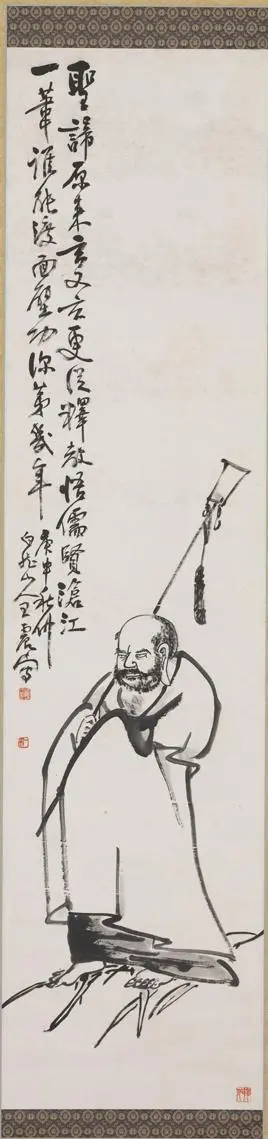 聖諦原來玄又玄更從釋教悟儒賢滄江
一葦誰能渡面壁功深第幾年
庚申秋仲
白龍山人王震寫